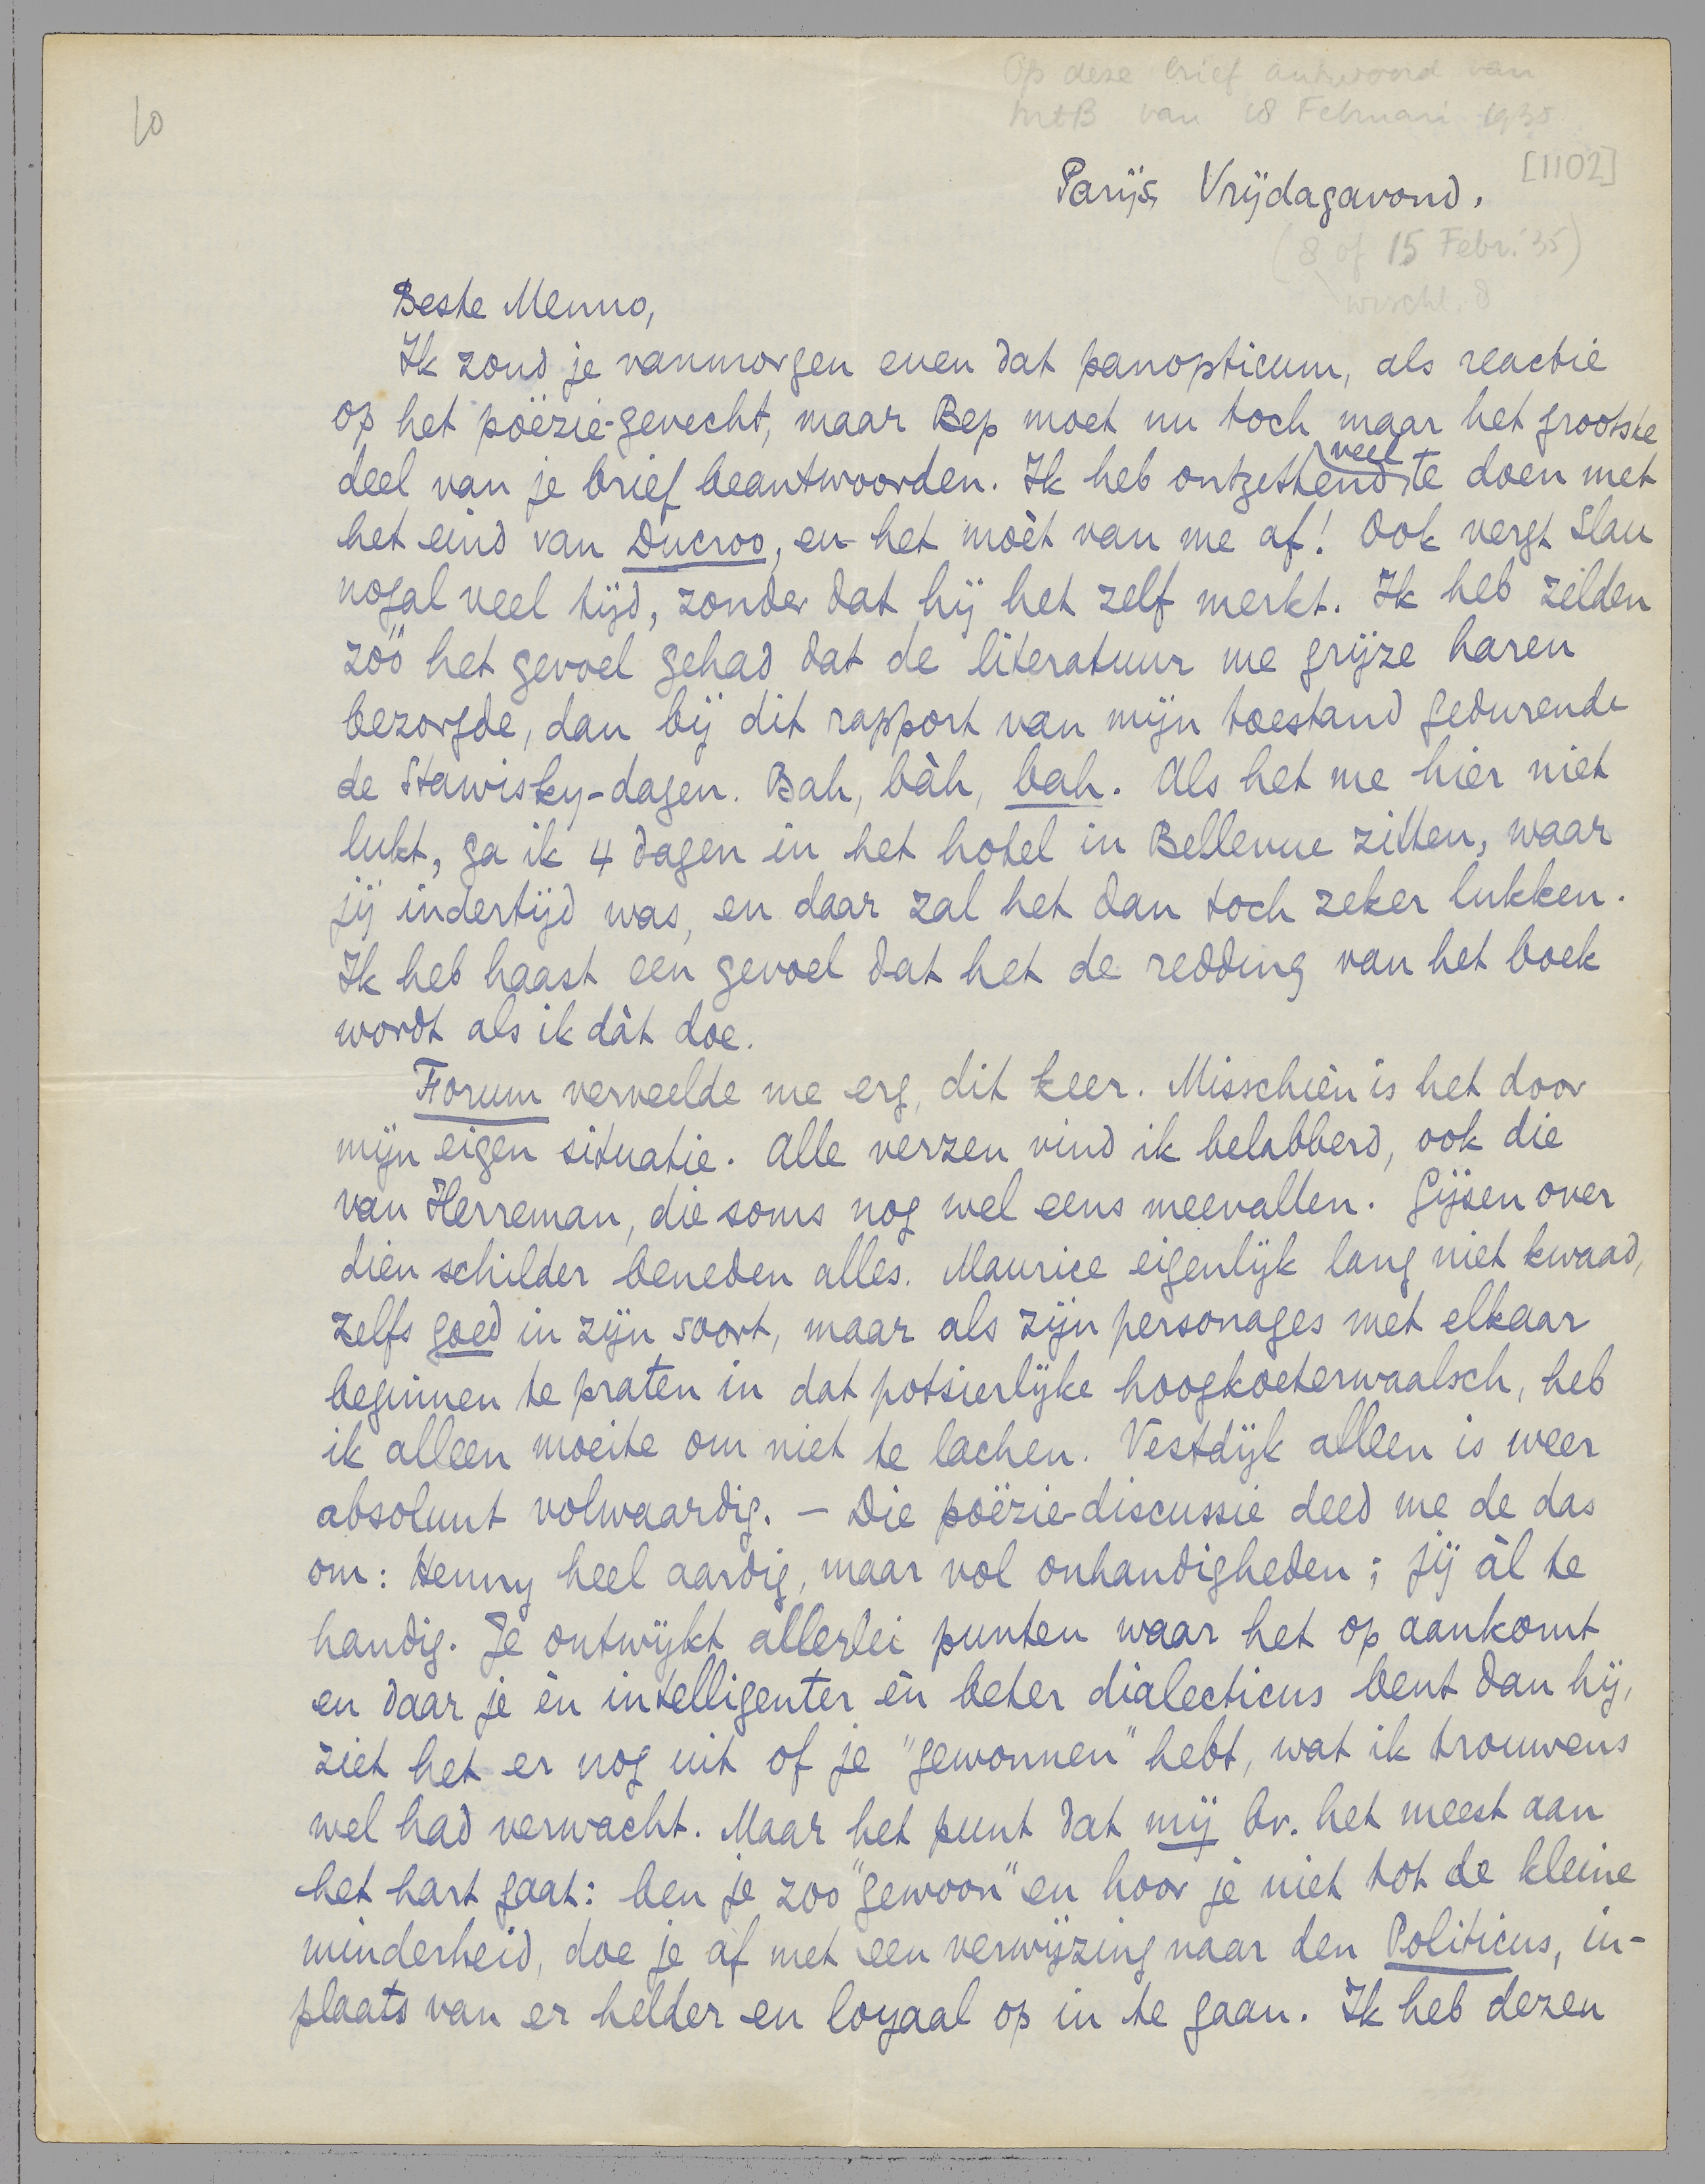 Op deze brief antwoord van
MtB van 18 Februari 1935
10
[1102]
Parijs, Vrijdagavond.
(8 of 15 Febr. '35)
wschl. 8
Beste Menno,
Ik zond je vanmorgen even dat panopticum, als reactie
op het poëzie-gevecht, maar Bep moet nu toch maar het grootste
deel van je brief beantwoorden. Ik heb ontzettend veel te doen met
het eind van Ducroo, en het moèt van me af! Ook vergt Slau
nogal veel tijd, zonder dat hij het zelf merkt. Ik heb zelden
zóó het gevoel gehad dat de literatuur me grijze haren
bezorgde, dan bij dit rapport van mijn toestand gedurende
de Stawisky-dagen. Bah, bàh, bah. Als het me hier niet
lukt, ga ik 4 dagen in het hotel in Bellevue zitten, waar
jij indertijd was, en daar zal het dan toch zeker lukken.
Ik heb haast een gevoel dat het de redding van het boek
wordt als ik dàt doe.
Forum verveelde me erg, dit keer. Misschien is het door
mijn eigen situatie. Alle verzen vind ik belabberd, ook die
van Herreman, die soms nog wel eens meevallen. Gijsen over
dien schilder beneden alles. Maurice eigenlijk lang niet kwaad,
zelfs goed in zijn soort, maar als zijn personages met elkaar
beginnen te praten in dat potsierlijke hoogkoeterwaalsch, heb
ik alleen moeite om niet te lachen. Vestdijk alleen is weer
absoluut volwaardig. - Die poëzie-discussie deed me de das
om: Henny heel aardig, maar vol onhandigheden; jij àl te
handig. Je ontwijkt allerlei punten waar het op aankomt
en daar je èn intelligenter èn beter dialecticus bent dan hij,
ziet het er nog uit of je "gewonnen" hebt, wat ik trouwens
wel had verwacht. Maar het punt dat mij bv. het meest aan
het hart gaat: ben je zoo "gewoon" en hoor je niet tot de kleine
minderheid, doe je af met een verwijzing naar den Politicus, in-
plaats van er helder en loyaal op in te gaan. Ik heb dezen